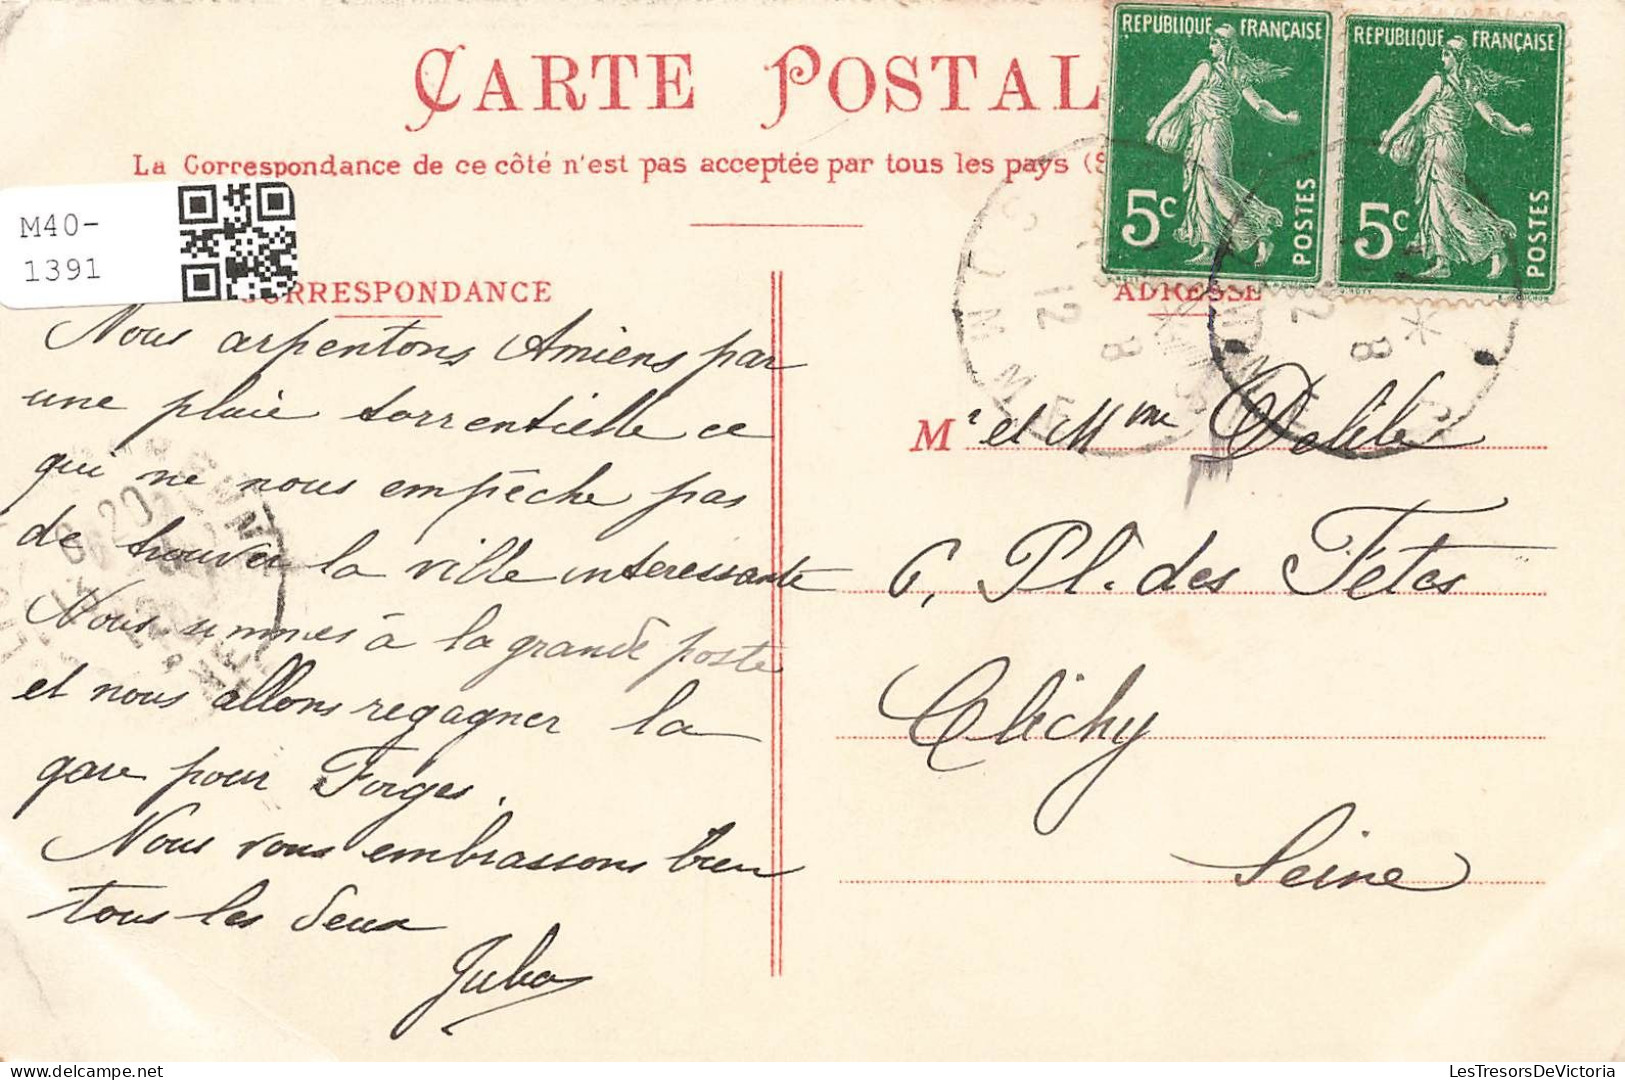 CARTE POSTAL
La Correspondance de ce côté n'est pas acceptée par tous les pays (S
REPUBLIQUE FRANÇAISE
5c
POSTES
REPUBLIQUE FRANÇAISE
5c
POSTES
M40-
1391
CORRESPONDANCE
Nous arpentons Amiens par
une pluie torrentielle ce
qui ne nous empêche pas
de trouver la ville interessante
Nous sommes à la grande poste
et nous allons regagner la
gare pour Forges.
Nous vous embrassons bien
tous les deux
ADRESSE
Mr et Mme Delile
6, Pl. des Fetes
Clichy
Seine
LesTresorsDeVictoria
delcampe.net